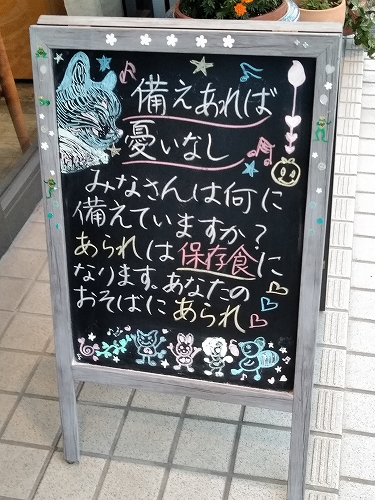 備えあれば
憂いなし
みなさんは何に
備えていますか?
あられは保存食に
なります。あなたの
おそばにあられ